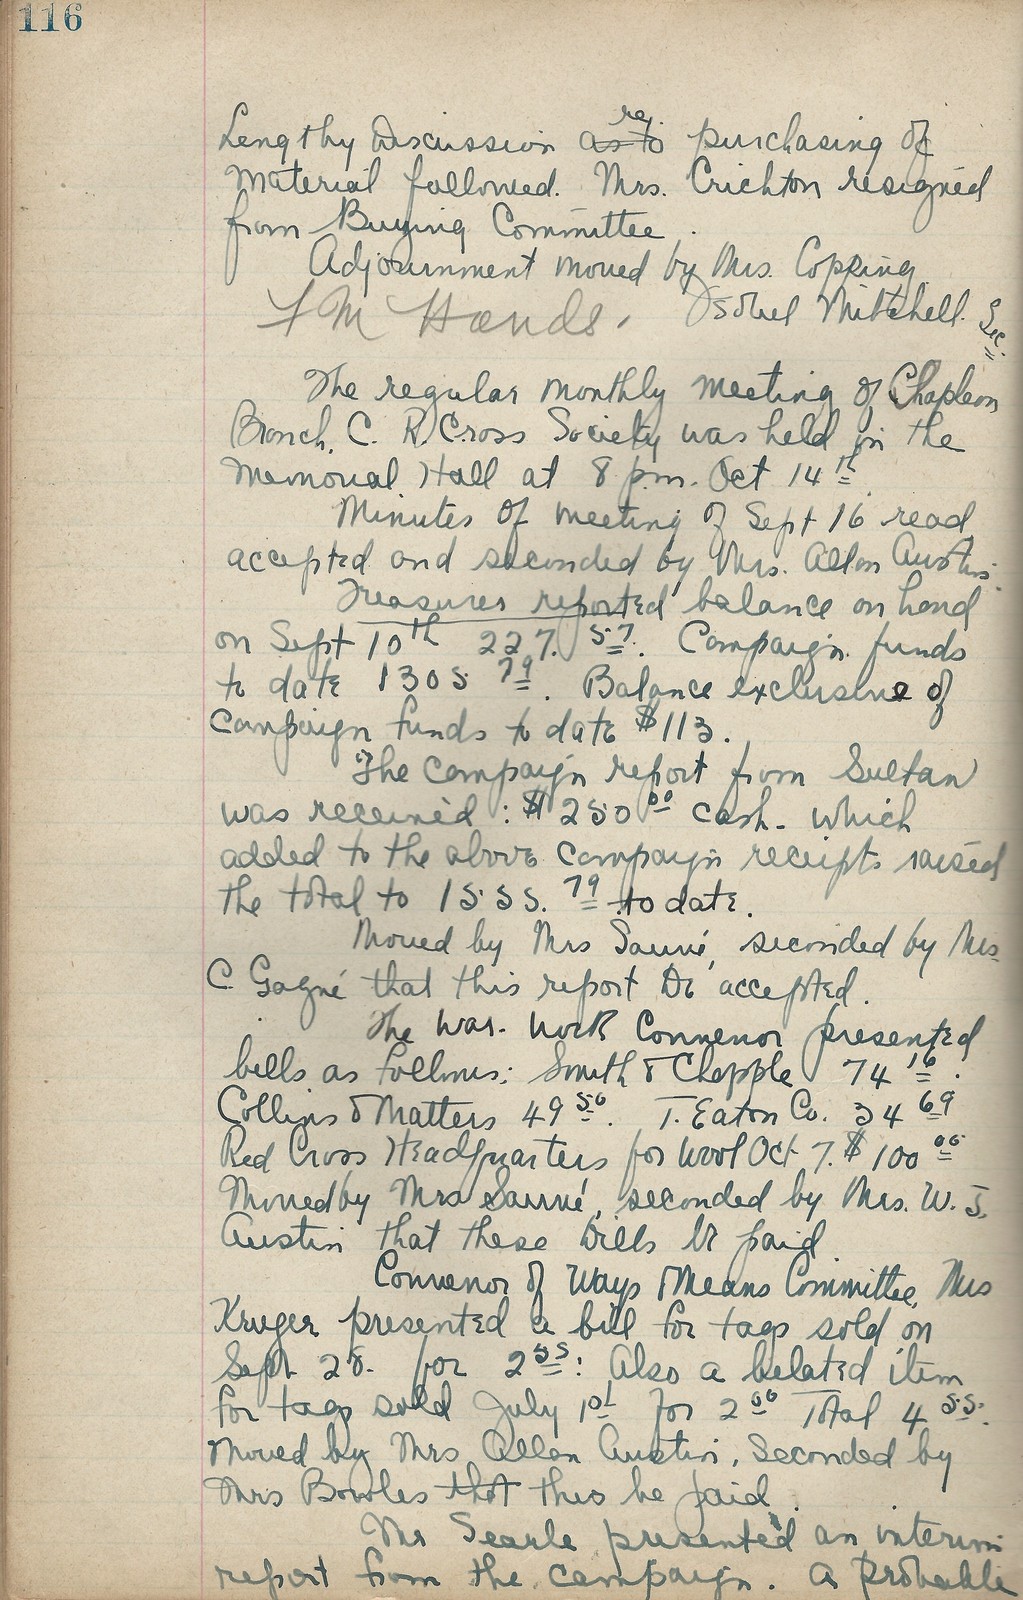 116
Lengthy Discussion as to re. purchasing of
Material followed. Mrs. Crichton resigned
from Buying Committee.
Adjournment moved by Mrs. Copping.
F M Hands. Isobel Mitchell. Sec.
The regular monthly meeting of Chapleau
Branch, C. R. Cross Society was held in the
Memorial Hall at 8 p.m. Oct 14th.
Minutes of meeting of Sept 16 read
accepted and seconded by Mrs. Allan Austin.
Treasures reported balance on hand
on Sept 10th 227.57. Campaign funds
to date 1305 79. Balance exclusive of
campaign funds to date $113.
The campaign report from Sultan
was received: $250 00 cash - which
added to the above campaign receipts raised
the total to 1555. 79 to date.
Moved by Mrs Sauvé, seconded by Mrs
C. Gagné that this report be accepted.
The War-Work Convenor presented
bills as follows: Smith & Chapple 74 16.
Collins & Matters 49 50. T. Eaton Co. 34 69
Red Cross Headquarters for wool Oct 7. $100 00
Moved by Mrs Sauvé, seconded by Mrs. W. J.
Austin that these bills be paid.
Convenor of Ways & Means Committee, Mrs
Kruger presented a bill for tags sold on
Sept 28. for 2 55: Also a belated item
for tags sold July 1st for 2 00 Total 4 55.
Moved by Mrs Allan Austin, Seconded by
Mrs Bowles that this be paid.
Mr Searle presented an interim
report from the campaign. A probable